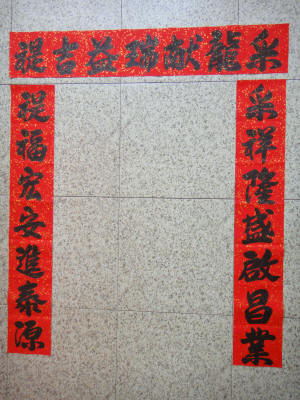 采龍献瑞益吉禔
采祥隆盛啟昌業
禔福宏安進泰源